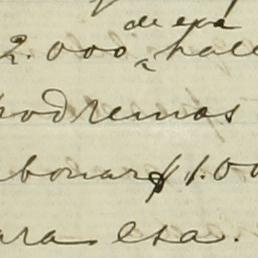 de esa
2.000 hall
podremos
abonar $1.00
ara esa.